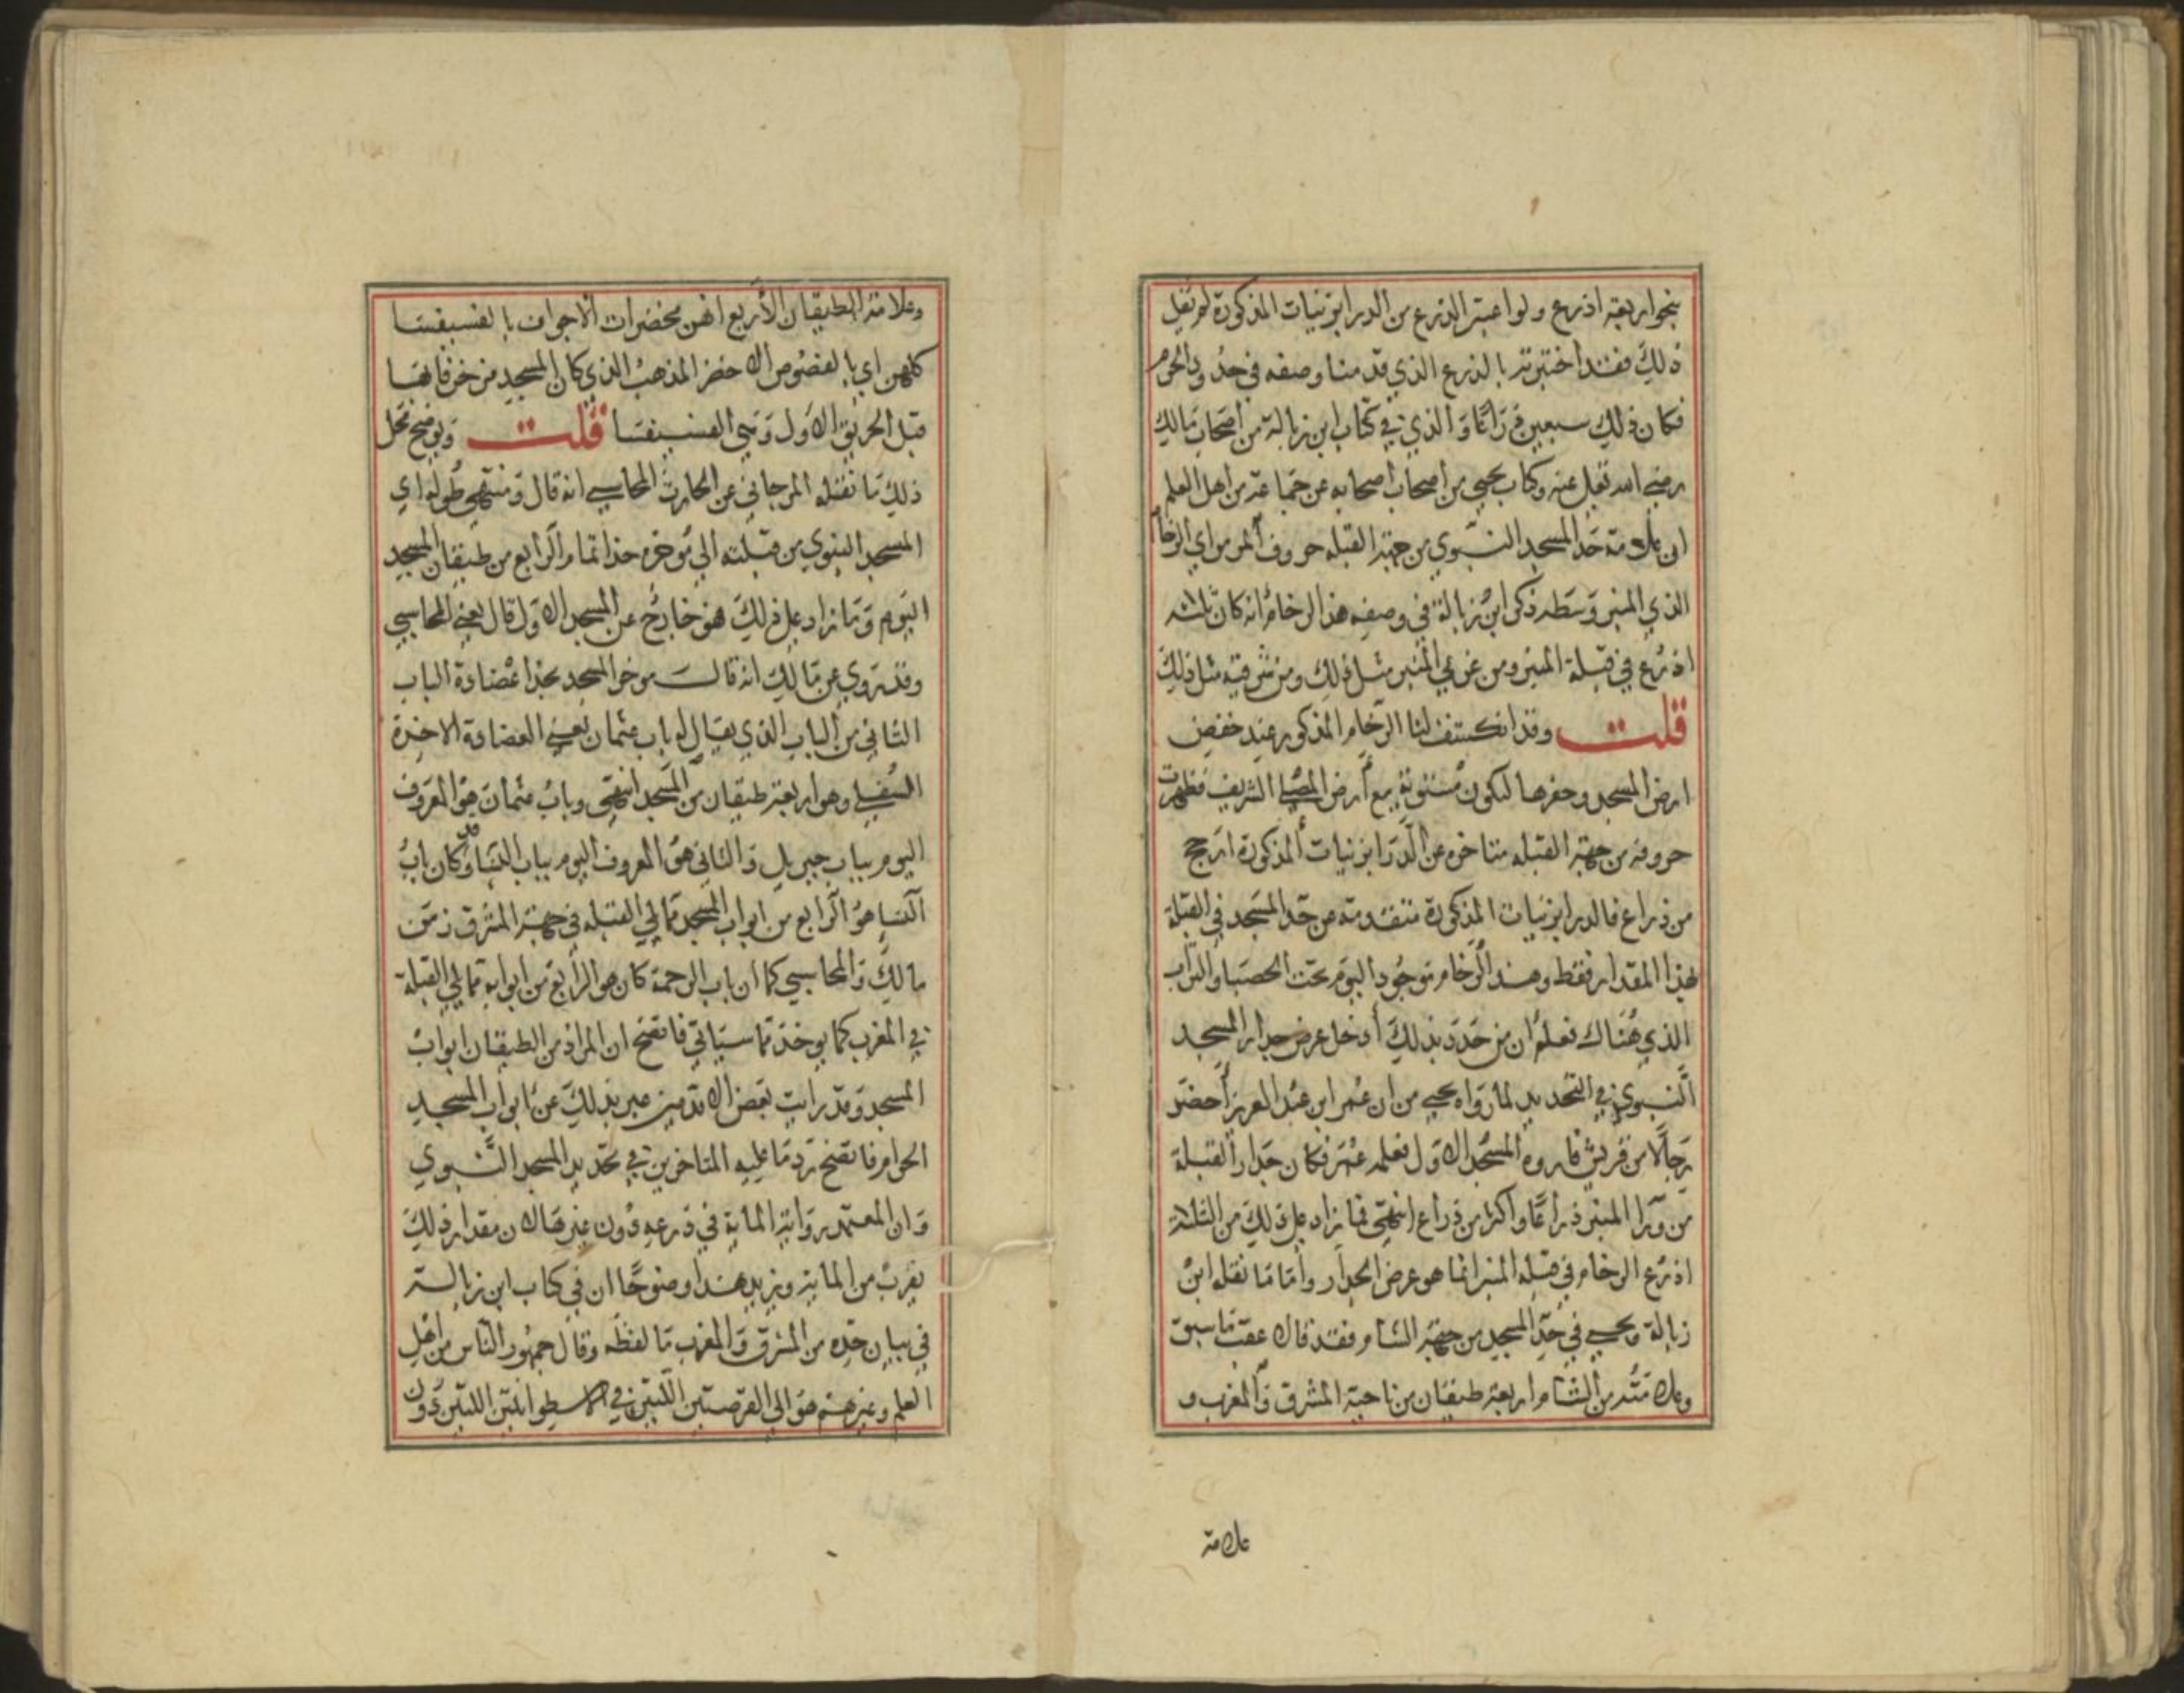 بنحو اربعة اذرع ولو اعتبر الذرع من الدرابزنيات المذكورة لم نقل
ذلك فقد اختبرته بالذرع الذي قدمنا وصفه في حدود الحرم
فكان ذلك سبعين ذراعًا والذي في كتاب ابن زبالة من اصحاب مالك
رضي الله تعلى عنه وكتاب يحيى من اصحاب اصحابه عن جماعة من اهل العلم
ان علامة حد المسجد النبوي من جهة القبلة حروف المرمر اي الرخام
الذي المنبر وسطه ذكر ابن زبالة في وصفه هذا الرخام انه كان ثلاثة
اذرع في قبلة المنبر ومن غربي المنبر مثل ذلك ومن شرقيه مثل ذلك
قلت وقد انكشف لنا الرخام المذكور عند خفض
ارض المسجد وحفرها لتكون مستوية مع ارض المصلى الشريف فظهرت
حروفه من جهة القبلة متاخرة عن الدرابزنيات المذكورة ارجح
من ذراع فالدرابزنيات المذكورة متقدمة عن حد المسجد في القبلة
بهذا المقدار فقط وهذا الرخام موجود اليوم تحت الحصبا والتراب
الذي هناك فعلم ان من حدد بذلك أدخل عرض جدار المسجد
النبوي في التحديد لما رواه يحيى من ان عمر ابن عبد العزيز احضر
رجالًا من قريش فاروه المسجد الاول فعلمه عمر فكان جدار القبلة
من ورا المنبر ذراعًا واكثر من ذراع انتهى فما زاد على ذلك من الثلاثة
اذرع الرخام في قبلة المنبر انما هو عرض الجدار واما ما نقله ابن
زبالة ويحيى في حد المسجد من جهة الشام فقد قالا عقب ما سبق
وعلامته من الشام اربعة طبقان من ناحية المشرق والمغرب و
علامة
وعلامة الطيقان الأربع انهن مخضرات الاجواف بالفسيفسا
كلهن اي بالفصوص الاخضر المذهب الذي كان المسجد مزخرفا بها
قبل الحريق الاول وهي الفسيفسا قلت ويوضح محل
ذلك ما نقله المرجاني عن الحارث المحاسبي انه قال ومنتهى طوله اي
المسجد النبوي من قبلته الي موخره حذا تمام الرابع من طيقان المسجد
اليوم وما زاد على ذلك فهو خارج عن المسجد الاول قال يعني المحاسبي
وقد روي عن مالك انه قال موخر المسجد بحذا عضادة الباب
الثاني من الباب الذي يقال له باب عثمان يعني العضادة الاخيرة
السفلى وهو اربعة طيقان من المسجد انتهى وباب عثمان هو المعروف
اليوم بباب جبريل والثاني هو المعروف اليوم بباب النسا وقد كان باب
النسا هو الرابع من ابواب المسجد مما يلي القبلة في جهة المشرق زمن
مالك والمحاسبي كما ان باب الرحمة كان هو الرابع من ابوابه مما يلي القبلة
في المغرب كما يوخذ مما سياتي فاتضح ان المراد من الطيقان ابواب
المسجد وقد رايت بعض الاقدمين عبر بذلك عن ابواب المسجد
الحرام فاتضح رد ما عليه المتاخرين في تحديد المسجد النبوي
وان المعتمد رواية الماية في ذرعه دون غيرها لان مقدار ذلك
يقرب من الماية ويزيد هذا وضوحًا ان في كتاب ابن زبالة
في بيان حده من المشرق والمغرب ما لفظه وقال جمهور الناس من اهل
العلم وغيرهم هو الى الفرضتين اللتين في الاسطوانتين اللتين دون